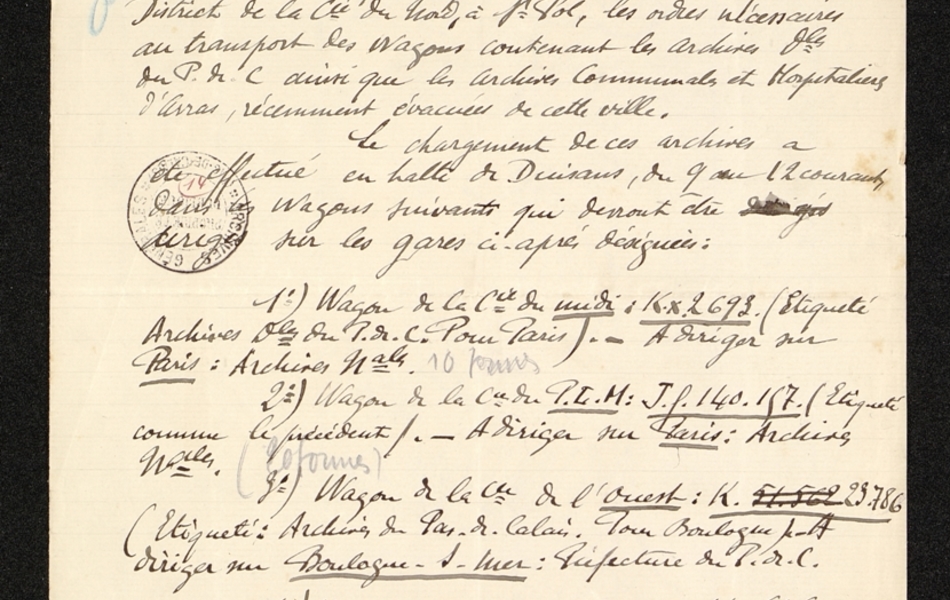 District de la Cie du Nord, à St Pol, les ordres nécessaires
au transport des wagons contenant les archives Dles
du P. de C ainsi que les archives Communales et Hospitalières
d'Arras, récemment évacuées de cette ville.
Le chargement de ces archives a
été effectué en halte de Duisans, du 9 au 12 courant,
dans les wagons suivants qui devront être
dirigés sur les gares ci-après désignées :
1°) Wagon de la Cie du midi : K.x.2693. (Etiqueté
Archives Dles du P.d.C. Pour Paris). — A diriger sur
Paris : Archives Nales. 10 tonnes
2°) Wagon de la Cie du P.L.M : J.f. 140.157. (Etiqueté
comme le précédent). — A diriger sur Paris : Archives
Nales. (10 tonnes)
3°) Wagon de la Cie de l'Ouest : K. 51.562 23.786
(Etiqueté : Archives du Pas-de-Calais. Pour Boulogne). — A
diriger sur Boulogne-s-mer : Préfecture du P.d.C.
ARCHIVES GÉNÉRALES
14